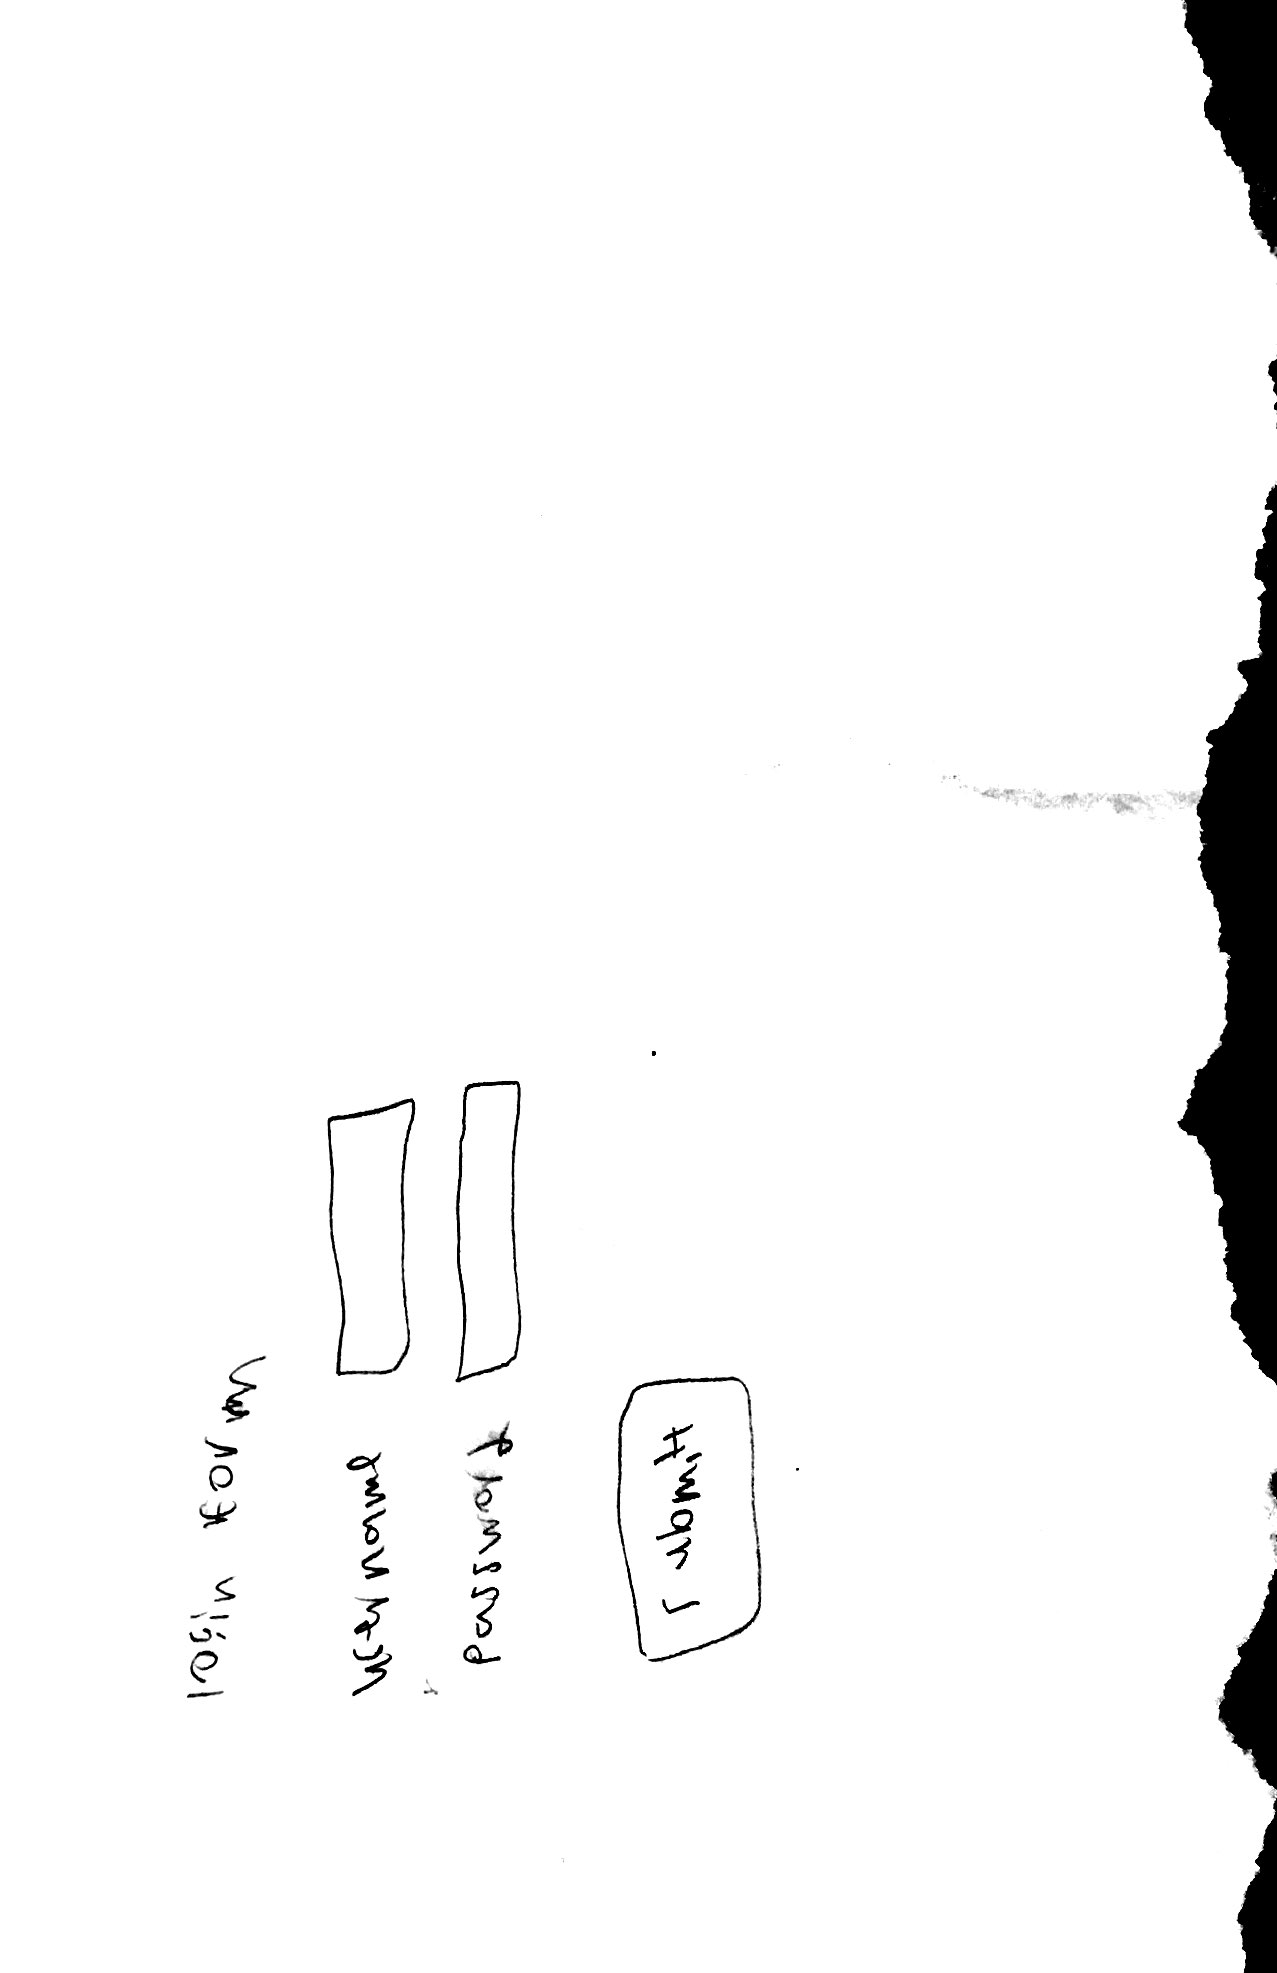 login form
username
password
submit